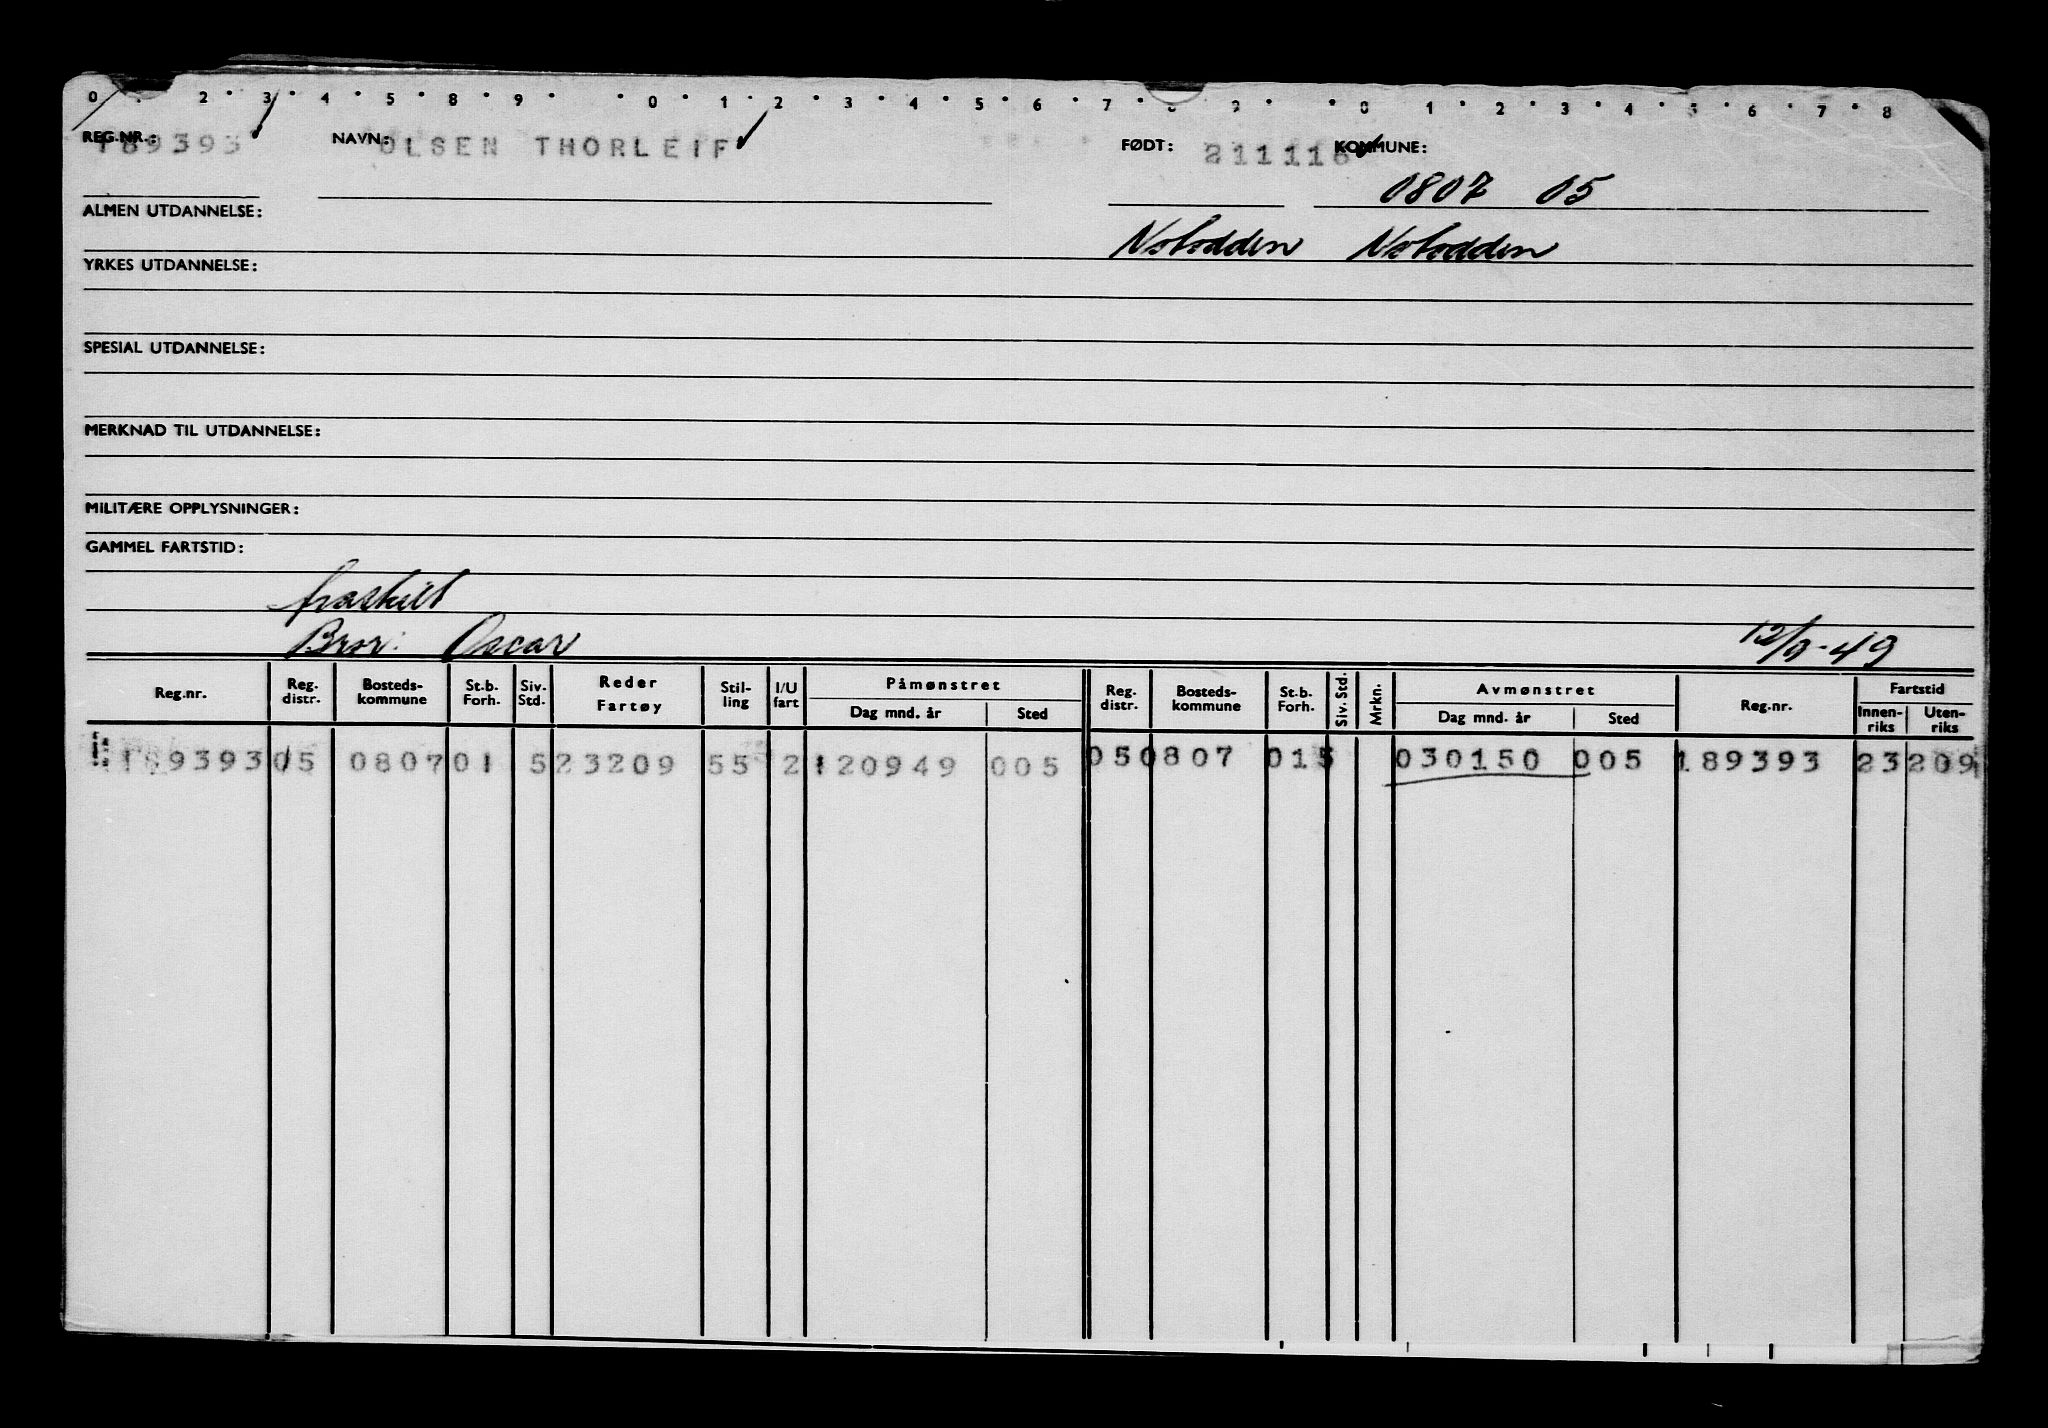 0 2 3 4 5 8 9 0 1 2 3 4 5 6 7 8 9 0 1 2 3 4 5 6 7 8
REG.NR.: 189393 NAVN: OLSEN THORLEIF FØDT: 211116 KOMMUNE:
0807 05
ALMEN UTDANNELSE:
Notodden Notodden
YRKES UTDANNELSE:
SPESIAL UTDANNELSE:
MERKNAD TIL UTDANNELSE:
MILITÆRE OPPLYSNINGER:
GAMMEL FARTSTID:
fraskilt
Bror: Oscar 12/9-49
Reg.nr. Reg. distr. Bosteds-kommune St.b. Forh. Siv. Std. Reder Fartøy Stil-ling I/U fart Påmønstret Dag mnd. år Sted Reg. distr. Bosteds-kommune St.b. Forh. Siv. Std. Mrkn. Avmønstret Dag mnd. år Sted Reg.nr. Fartstid Innen-riks Uten-riks
189393 05 0807 01 5 23209 55 2 120949 005 05 0807 01 5 030150 005 189393 23209